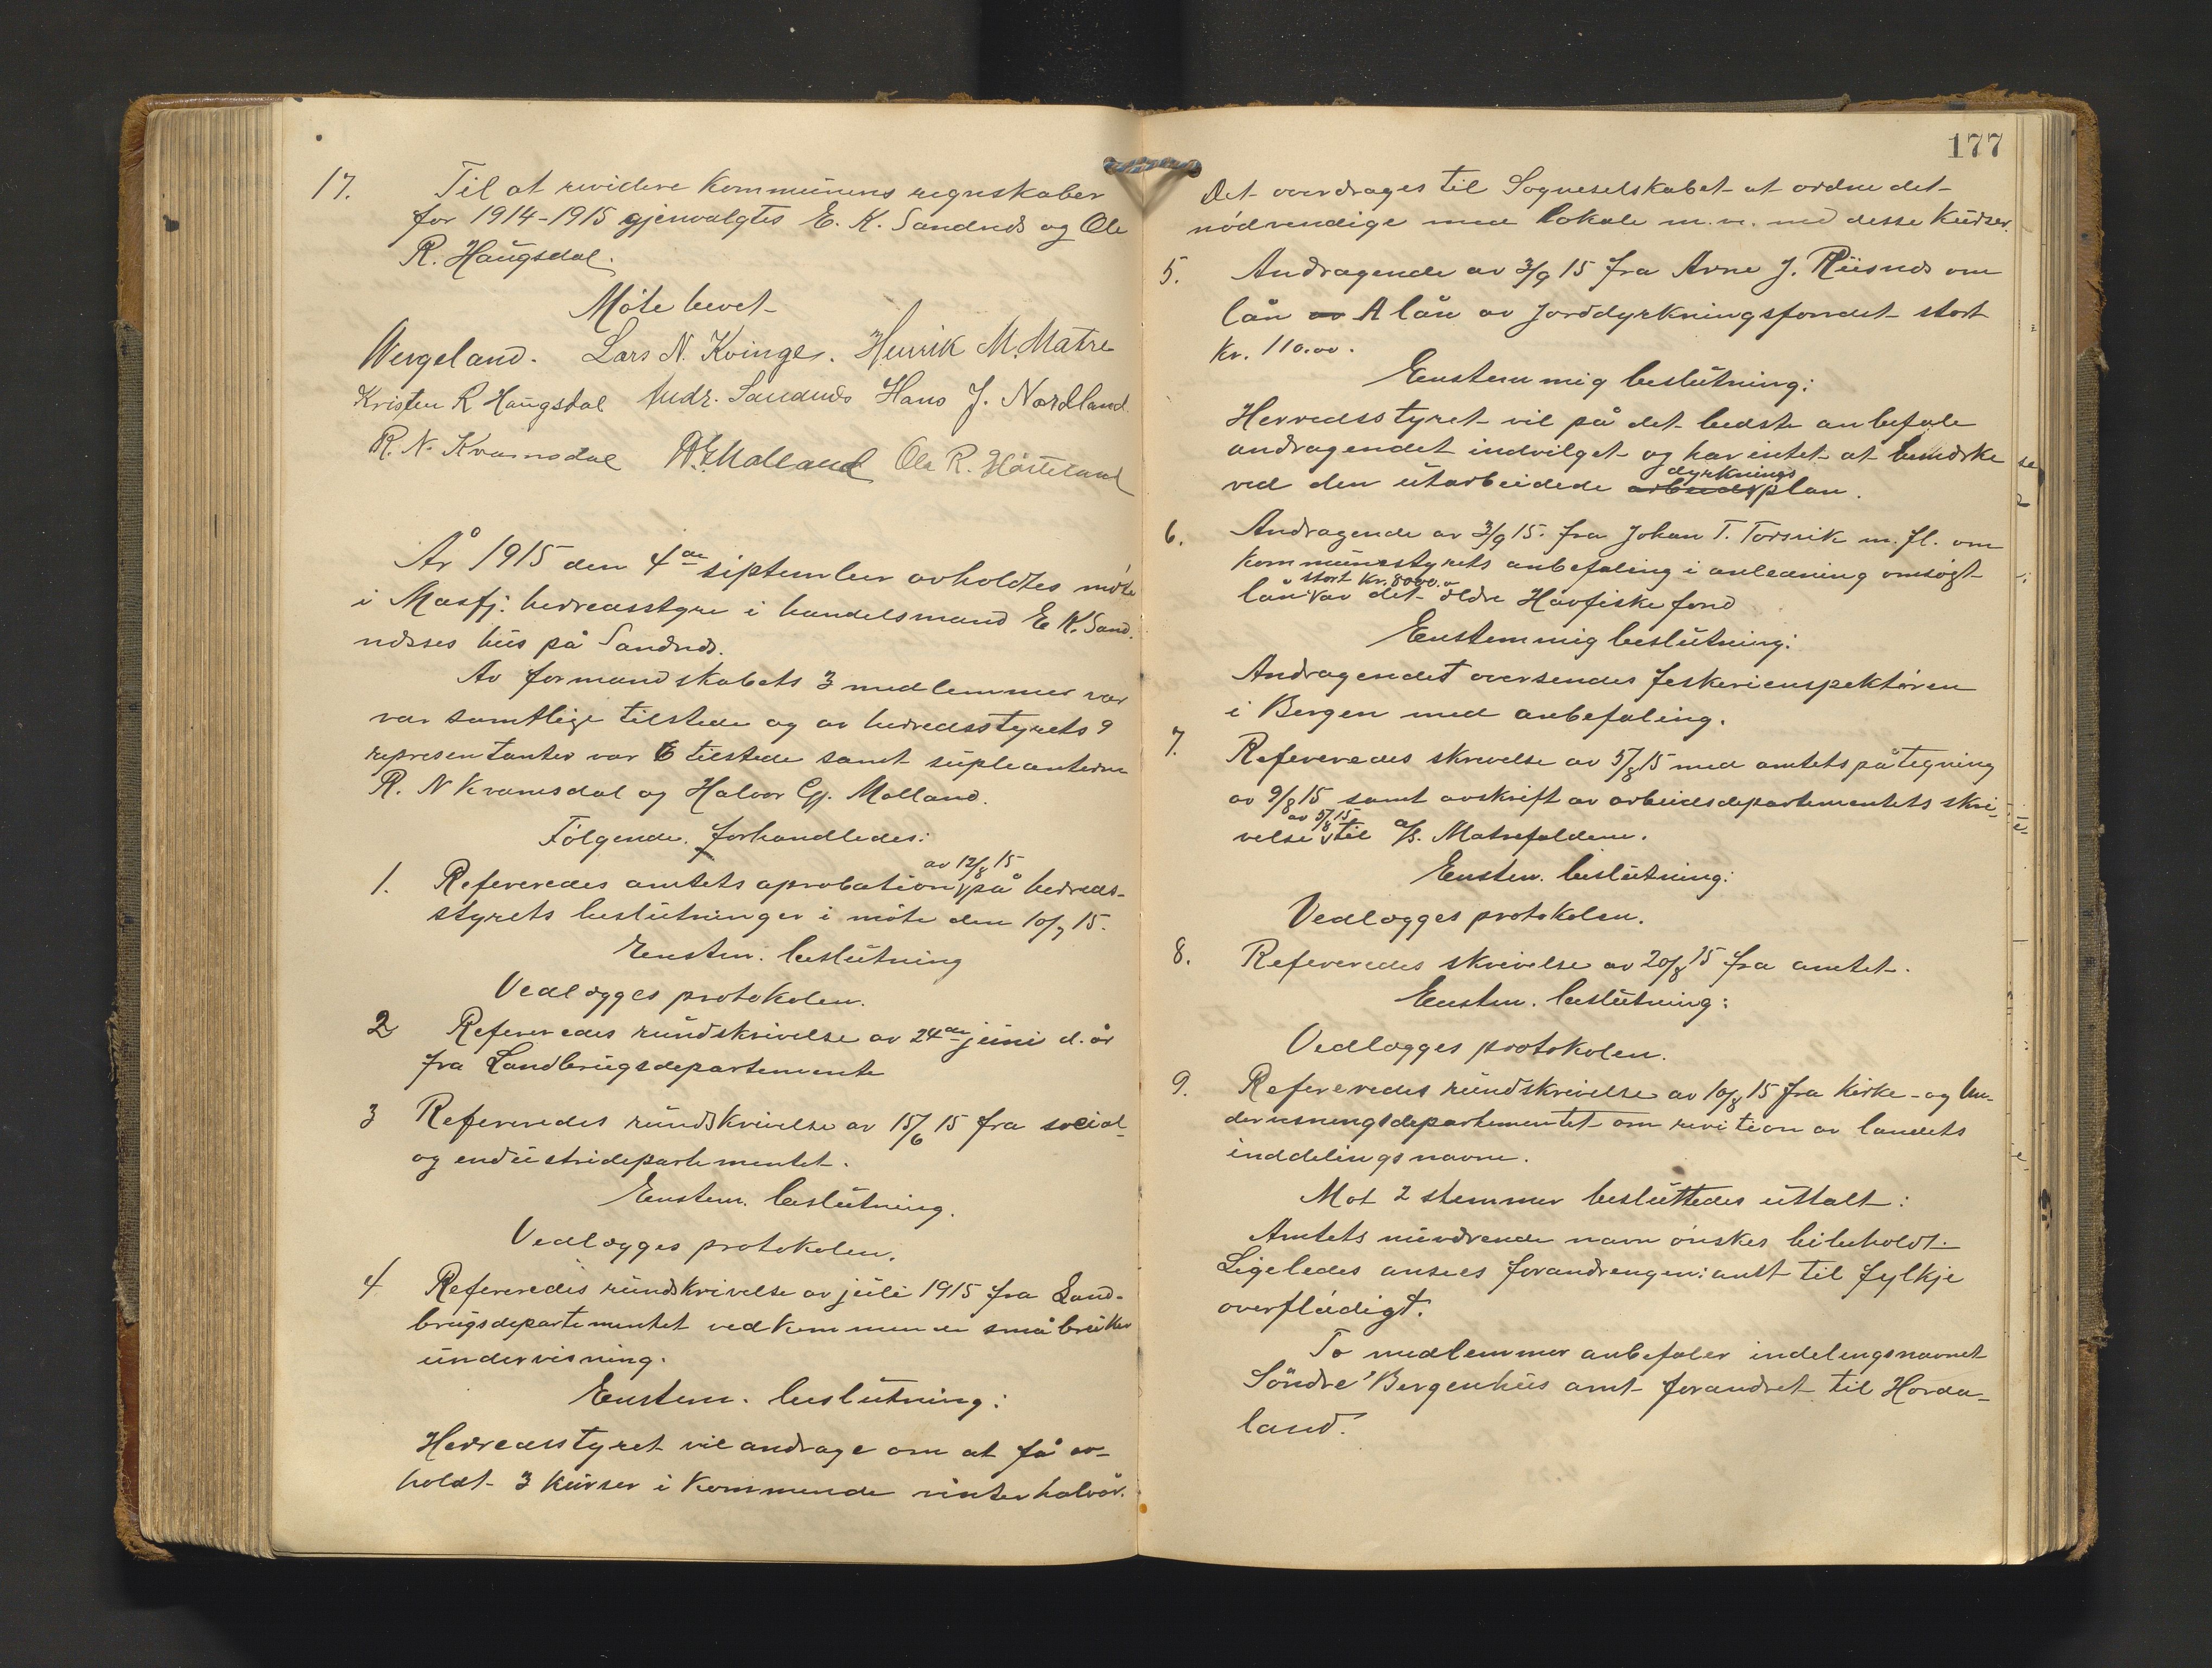 17. Til at revidere kommunens regnskaber
for 1914-1915 gjenvalgtes E. K. Sandnæs og Ole
R. Haugsdal.
Møte hevet
Wergeland. Lars N. Kvinge. Henrik M. Matre
Kristen R Haugsdal Andr. Sandnæs Hans J. Nordland
R. N. Kvamsdal Ole R. Hårteland
År 1915 den 4de september avholdtes møte
i Masfj. herredsstyre i handelsmand E. K. Sand-
næsses hus på Sandnæs.
Av formandskabets 3 medlemmer var
var samtlige tilstede og av herredsstyrets 9
representanter var 6 tilstede samt supleanterne
R. N Kvamsdal og Halvor Gj. Molland.
Følgende forhandledes:
av 12/8 15
1. Refereredes amtets aprobation på herreds-
styrets beslutninger i møte den 10/7 15.
Enstem. beslutning
Vedlægges protokolen.
2 Refereredes rundskrivelse av 24de juni d. år
fra Landbrugsdepartemente
3 Refereredes rundskrivelse av 15/6 15 fra social-
og endustridepartementet.
Enstem. beslutning.
Vedlægges protokolen.
4 Refereredes rundskrivelse av juli 1915 fra Land-
brugsdepartementet vedkommende småbruker
undervisning.
Enstem. beslutning:
Herredsstyret vil andrage om at få av-
holdt 3 kurser i kommende vinterhalvår.
177
Det overdrages til Sogneselskabet at ordne det
nødvendige med lokale m.v. ved desse kurser.
5. Andragende av 3/9 15 fra Arne J. Riisnæs om
lån av A lån av Jorddyrkningsfondet stort
kr. 110.00.
Enstemmig beslutning:
Herredsstyret vil på det bedste anbefale
andragendet indvilget og har intet at bemærke
dyrknings
ved den utarbeidede arbeidsplan.
6. Andragende av 3/9 15. fra Johan T. Torsvik m. fl. om
kommunestyrets anbefaling i anledning omsøgt
stort kr. 8000.00
lån av det ældre Havfiskefond
Enstemmig beslutning:
Andragendet oversendes feskerienspektøren
i Bergen med anbefaling.
7. Refereredes skrivelse av 5/8 15 med amtets påtegning
av 9/8 15 samt avskrift av arbeidsdepartementets skri-
av 5/8 15
velse til a/s. Matrefaldene.
Enstem. beslutning:
Vedlægges protokolen.
8. Refereredes skrivelse av 20/8 15 fra amtet.
Enstem. beslutning:
Vedlægges protokolen.
9. Refereredes rundskrivelse av 10/8 15 fra Kirke- og Un-
dervisningsdepartementet om revition av landets
inddelingsnavne.
Mot 2 stemmer besluttedes uttalt:
Amtets nuværende navn ønskes bibeholdt.
Ligeledes ansees forandrengen: amt til fylkje
overflødigt.
To medlemmer anbefaler indelingsnavnet
Söndre Bergenhus amt forandret til Horda-
land.